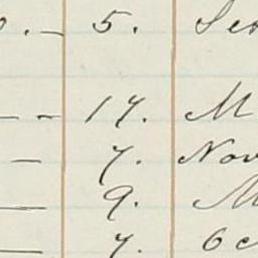 5. Se
17. M
7. Nov
9. M
7. Oc